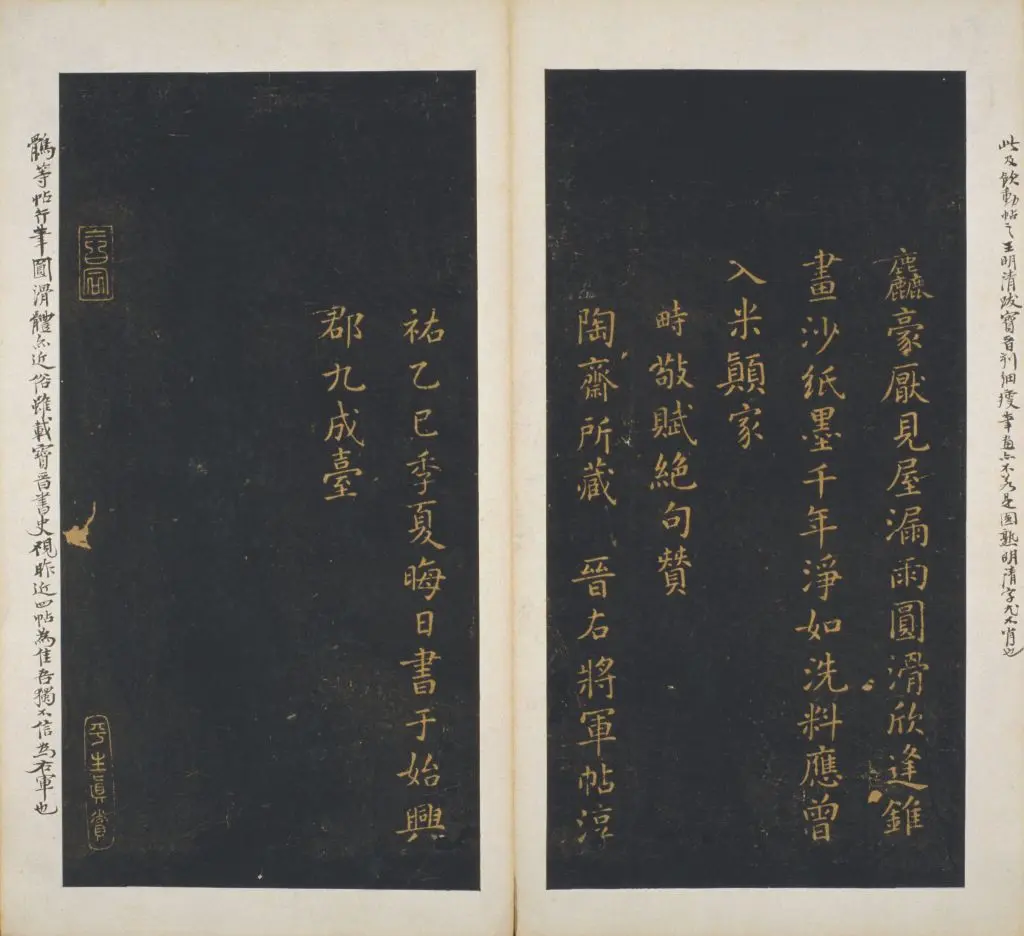 此及飲動帖之王明清跋寶晉刊細瘦筆画亦不若是圓熟明清字尤不肖也
麤豪厭見屋漏雨圓滑欣逢錐
畫沙紙墨千年淨如洗料應曾
入米顛家
時敬賦絕句贊
陶齋所藏 晉右將軍帖淳
祐乙巳季夏晦日書于始興
郡九成臺
平生真賞
鶻等帖行筆圓滑體亦近俗雖載寶晉書史視昨近四帖為佳吾獨不信為右軍也